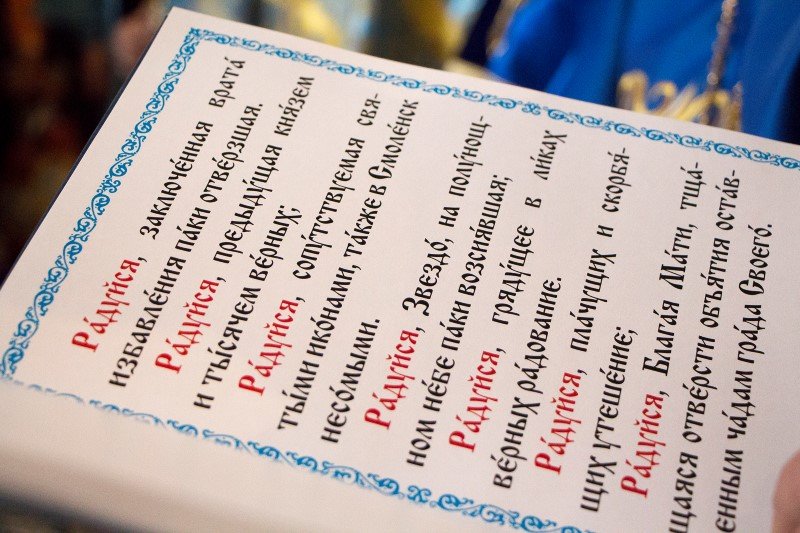 Ра́дуйся, заключе́нная врата́
избавле́ния па́ки отве́рзшая.
Ра́дуйся, предыду́щая кня́зем
и ты́сячем ве́рных;
Ра́дуйся, сопу́тствуемая свя-
ты́ми ико́нами, та́кже в Смоле́нск
несо́мыми.
Ра́дуйся, Звездо́, на полу́нощ-
ном не́бе па́ки возсия́вшая;
Ра́дуйся, гряду́щее в ли́ках
ве́рных ра́дование.
Ра́дуйся, пла́чущих и скорбя́-
щих утеше́ние;
Ра́дуйся, Блага́я Ма́ти, тща́-
щаяся отве́рсти объя́тия оста́в-
енным ча́дам гра́да Своего́.